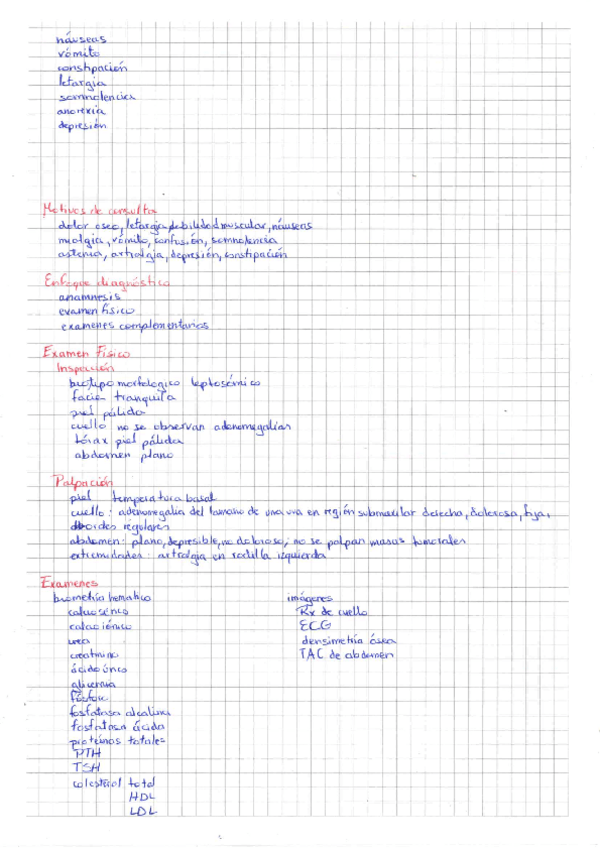 náuseas
vómito
constipación
letargia
somnolencia
anorexia
depresión
Motivos de consulta
dolor oseo, letargia, debilidad muscular, náuseas
mialgia, vómito, confusión, somnolencia
astenia, artralgia, depresión, constipación
Enfoque diagnóstico
anamnesis
examen físico
examenes complementarios
Examen Físico
Inspección
biotipo morfologico leptosómico
facie tranquila
piel pálida
cuello no se observan adenomegalias
tórax piel pálida
abdomen plano
Palpación
piel temperatura basal
cuello: adenomegalia del tamaño de una uva en región submaxilar derecha, dolorosa, fija,
bordes regulares
abdomen: plano, depresible, no doloroso, no se palpan masas tumorales
extremidades: artralgia en rodilla izquierda
Examenes
biometría hematica
calcio sérico
calcio iónico
urea
creatinina
ácido úrico
glicemia
fósforo
fosfatasa alcalina
fosfatasa ácida
proteinas totales
PTH
TSH
colesterol total
HDL
LDL
imágenes
Rx de cuello
ECG
densimetría ósea
TAC de abdomen